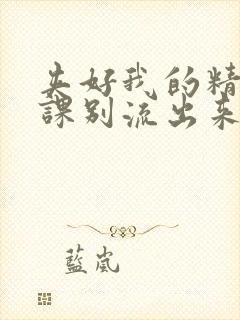 夹好我的精
課别流出来
藍岚